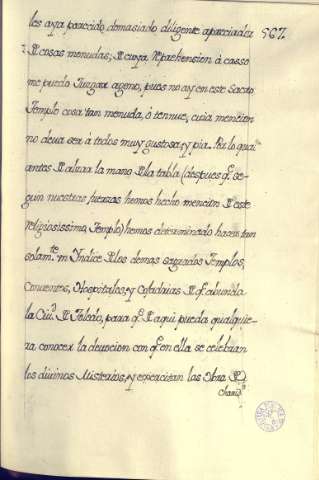 les aya parecido, demasiado diligente apreciador 567.
de cosas menudas; de cuya reprehension à casso
me puedo Juzgar ageno, pues no ay en este Sacro
Templo cosa tan menuda, ò tennue, cuia mencion
no deva ser à todos muy gustosa, y pia. Por lo qual
antes de alzar la mano de la tabla (despues q.e se-
gun nuestras fuerzas hemos hecho mencion de este
religiosissimo Templo) hemos determinado hacer tan
solam.te un Indice de los demas sagrados Templos,
Conventos, Hospitales, y Cofadrias de q.e abunda
la Ciu.d de Toledo, para q.e de aqui pueda qualquie-
ra conocer la devocion con q.e en ella se celebran
los divinos Misterios, y exercitan las Obras de
charid.d